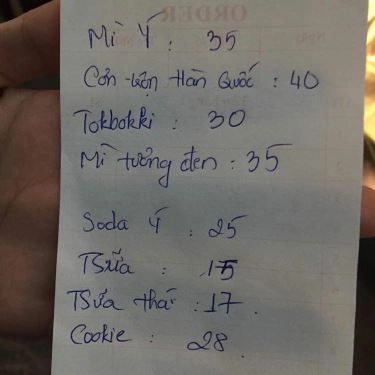 Mì Ý : 35
Cơn trộn Hàn Quốc : 40
Tokbokki : 30
Mì tưởng đen : 35
Soda Ý : 25
TSữa : 15
TSữa thái : 17
Cookie : 28